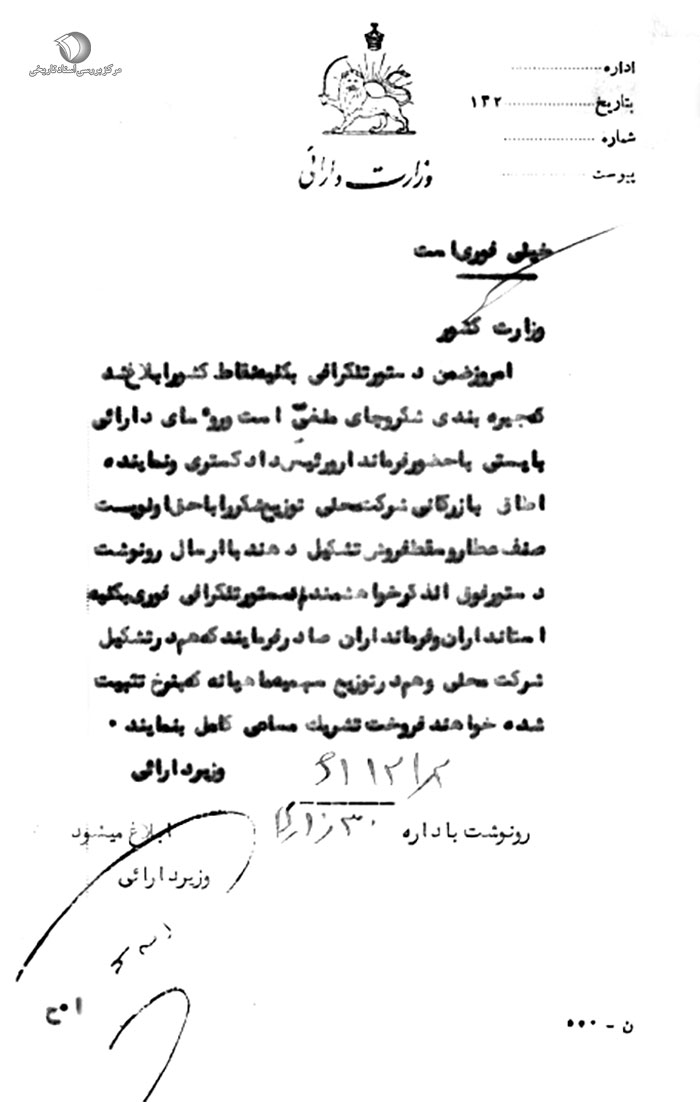 مرکز بررسی اسناد تاریخی
اداره
بتاریخ ۱۳۲
شماره
پیوست
وزارت دارائی
خیلی فوری است
وزارت کشور
امروز ضمن دستور تلگرافی بکلیه نقاط کشور ابلاغ شد
که جیره بندی شکر و چای ملغی است و روسای دارائی
بایستی با حضور فرماندار و رئیس دادگستری و نماینده
اطاق بازرگانی شرکت محلی توزیع شکر را با حق اولویت
صنف عطار و سقط فروش تشکیل دهند با ارسال رونوشت
دستور فوق الذکر خواهشمندم دستور تلگرافی فوری بکلیه
استانداران و فرمانداران صادر فرمایند که هم در تشکیل
شرکت محلی و هم در توزیع سهمیه ماهیانه که بنرخ تثبیت
شده خواهند فروخت تشریک مساعی کامل بنمایند ۰
وزیر دارائی
رونوشت باداره ابلاغ میشود
وزیر دارائی
ا ۰ح
ن - ۵۰۰